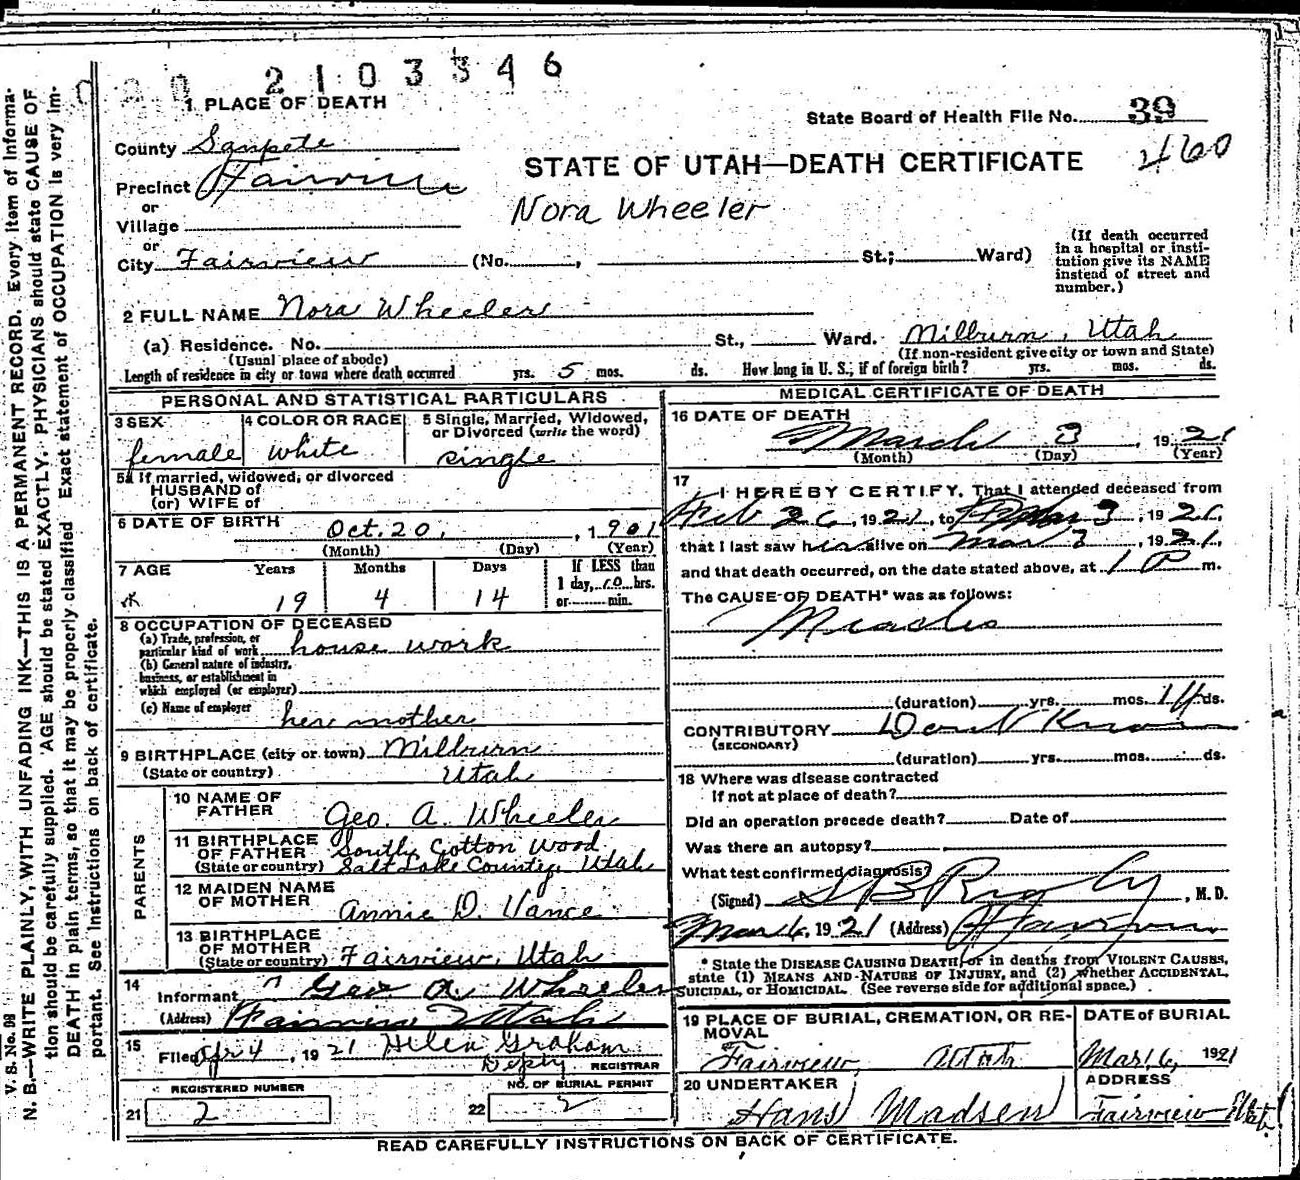 2103346
1 PLACE OF DEATH
State Board of Health File No. 39
460
County Sanpete
STATE OF UTAH—DEATH CERTIFICATE
Precinct Fairview
or
Nora Wheeler
Village
or
City Fairview (No. , St.; Ward)
(If death occurred in a hospital or insti-
tution give its NAME instead of street and number.)
2 FULL NAME Nora Wheeler
(a) Residence. No. St., Ward. Milburn, Utah
(Usual place of abode) (If non-resident give city or town and State)
Length of residence in city or town where death occurred yrs. 5 mos. ds. How long in U. S., if of foreign birth? yrs. mos. ds.
PERSONAL AND STATISTICAL PARTICULARS
3 SEX female
4 COLOR OR RACE white
5 Single, Married, Widowed, or Divorced (write the word)
single
5a If married, widowed, or divorced
HUSBAND of
(or) WIFE of
6 DATE OF BIRTH Oct. 20, 1901
(Month) (Day) (Year)
7 AGE Years Months Days If LESS than
1 day, 10 hrs.
19 4 14 or min.
8 OCCUPATION OF DECEASED
(a) Trade, profession, or
particular kind of work house work
(b) General nature of industry,
business, or establishment in
which employed (or employer)
(c) Name of employer her mother
9 BIRTHPLACE (city or town) Milburn
(State or country) Utah
PARENTS
10 NAME OF
FATHER Geo. A. Wheeler
11 BIRTHPLACE South Cotton Wood
OF FATHER
(State or country) Salt Lake County, Utah
12 MAIDEN NAME
OF MOTHER Annie D. Vance
13 BIRTHPLACE
OF MOTHER
(State or country) Fairview, Utah
14
Informant Geo A. Wheeler
(Address) Fairview Utah
15
Filed Apr 4, 1921 Helen Graham
Depty REGISTRAR
REGISTERED NUMBER
21 2
NO. OF BURIAL PERMIT
22 2
MEDICAL CERTIFICATE OF DEATH
16 DATE OF DEATH
March 3, 1921
(Month) (Day) (Year)
17
I HEREBY CERTIFY, That I attended deceased from
Feb 26, 1921, to Mar 3, 1921,
that I last saw her alive on Mar 3, 1921,
and that death occurred, on the date stated above, at 1 P m.
The CAUSE OF DEATH* was as follows:
Measles
(duration) yrs. mos. 14 ds.
CONTRIBUTORY Dont Know
(SECONDARY)
(duration) yrs. mos. ds.
18 Where was disease contracted
If not at place of death?
Did an operation precede death? Date of
Was there an autopsy?
What test confirmed diagnosis?
(Signed) S B Rigby, M. D.
Mar 4, 1921 (Address) Fairview
* State the DISEASE CAUSING DEATH, or in deaths from VIOLENT CAUSES,
state (1) MEANS AND NATURE OF INJURY, and (2) whether ACCIDENTAL,
SUICIDAL, or HOMICIDAL. (See reverse side for additional space.)
19 PLACE OF BURIAL, CREMATION, OR RE-
MOVAL
Fairview, Utah
DATE OF BURIAL
Mar. 6, 1921
20 UNDERTAKER
Hans Madsen
ADDRESS
Fairview Utah
READ CAREFULLY INSTRUCTIONS ON BACK OF CERTIFICATE.
V. S. No. 98
N. B.—WRITE PLAINLY, WITH UNFADING INK—THIS IS A PERMANENT RECORD. Every item of informa-
tion should be carefully supplied. AGE should be stated EXACTLY. PHYSICIANS should state CAUSE OF
DEATH in plain terms, so that it may be properly classified. Exact statement of OCCUPATION is very im-
portant. See instructions on back of certificate.